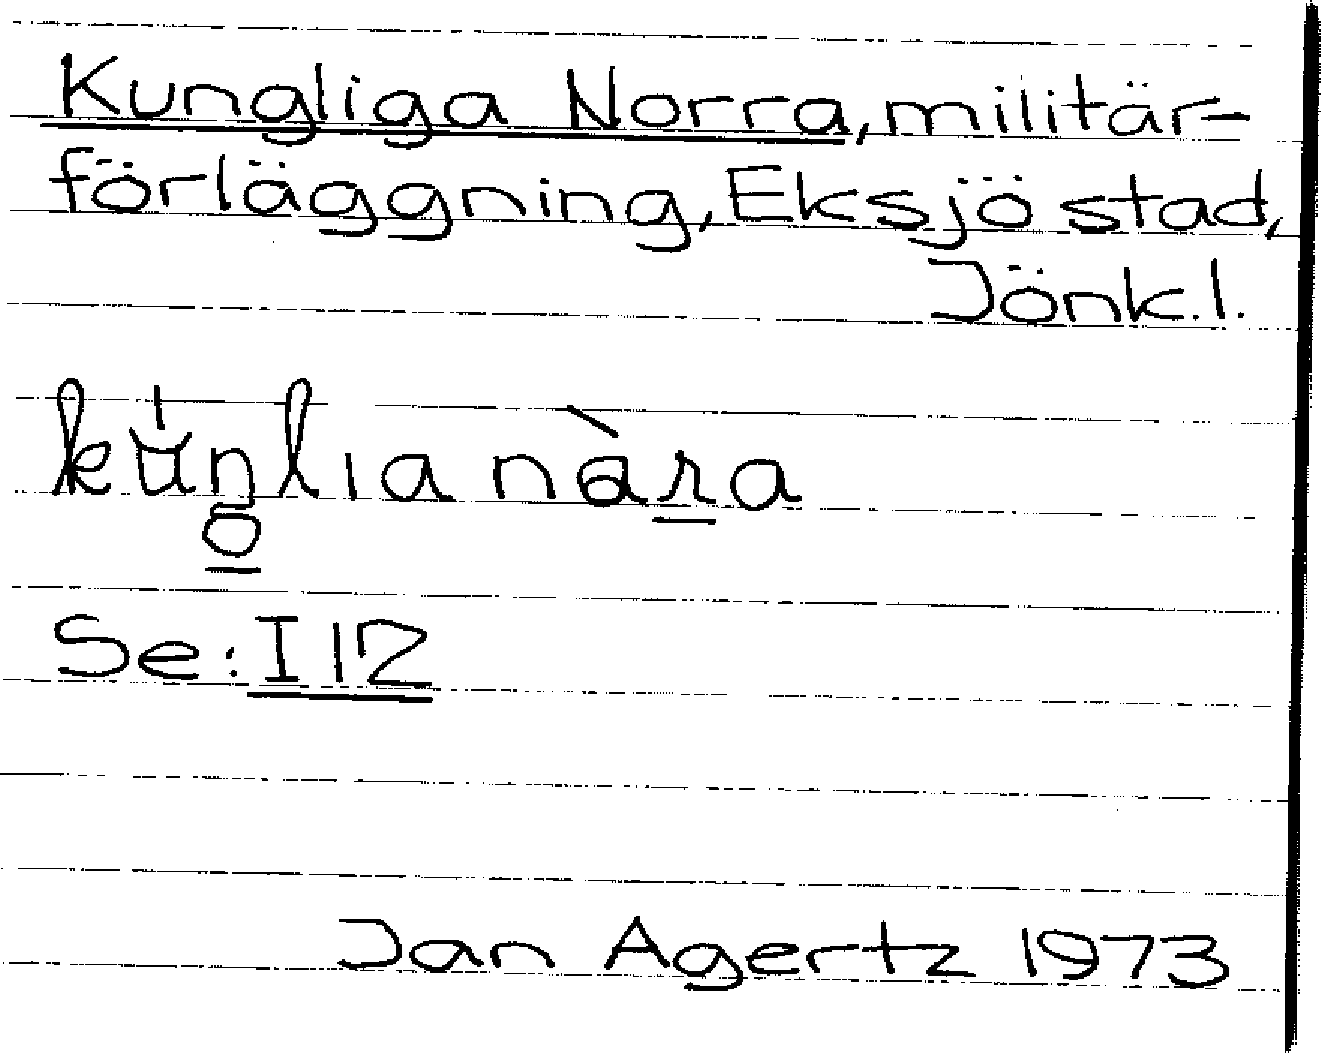 Kungliga Norra, militär-
förläggning, Eksjö stad,
Jönk.l.
Se: I 12
Jan Agertz 1973